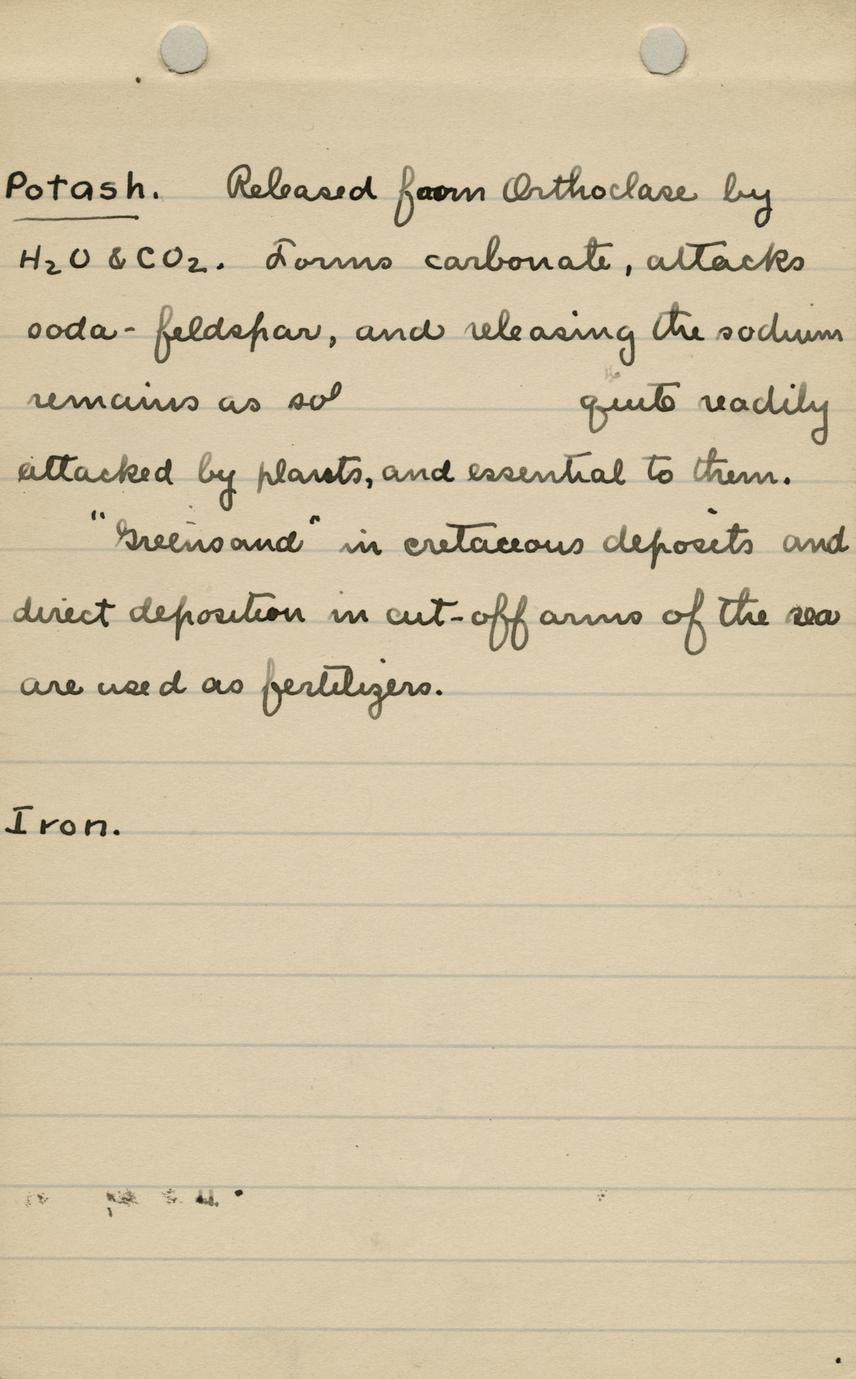 Potash. Released from Orthoclase by
H₂O & CO₂. Forms carbonate, attacks
soda-feldspar, and releasing the sodium
remains as sol quite readily
attacked by plants, and essential to them.
"Greensand" in cretaceous deposits and
direct deposition in cut-off arms of the sea
are used as fertilizers.
Iron.